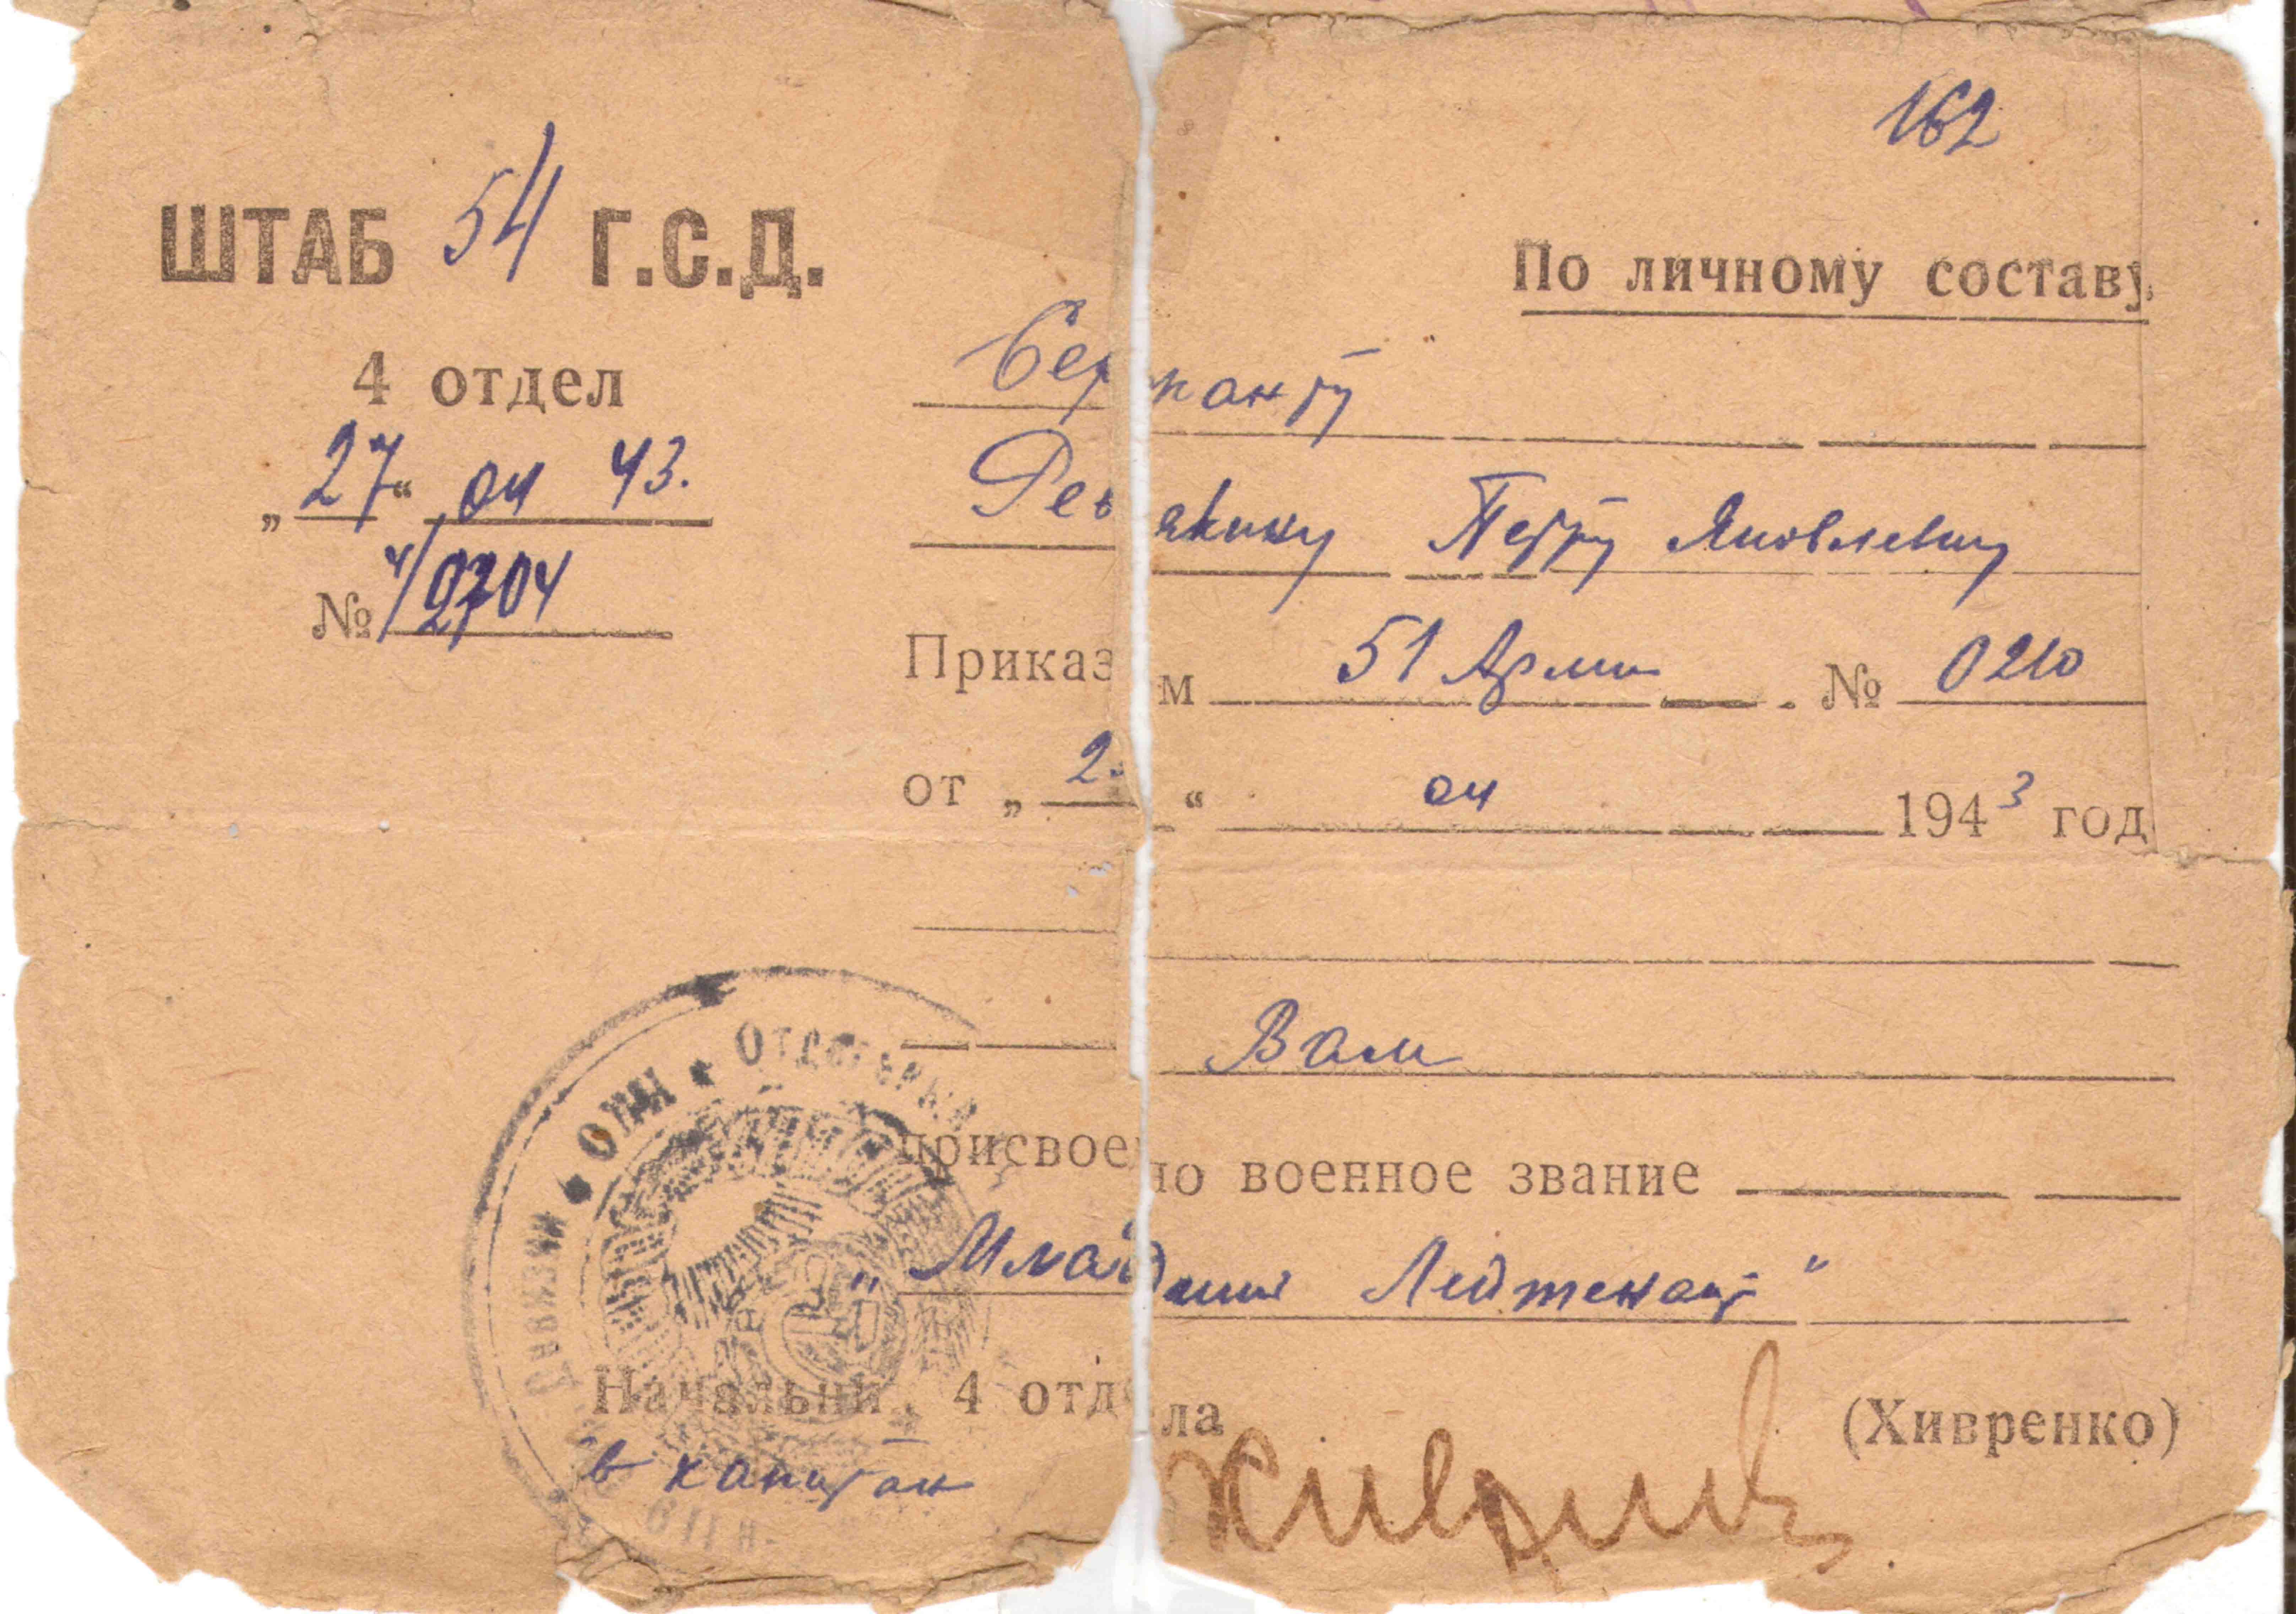 162
ШТАБ 54 Г.С.Д.
По личному составу
4 отдел
Сержанту
„27“ 04 43.
Ревякину Петру Яковлевичу
№ 4/2704
Приказом 51 Армии № 0210
от „2 “ 04 1943 год
Вам
присвоено военное звание
„Младший Лейтенант“
Начальник 4 отдела (Хивренко)
в капитан
ДИВИЗИИ • ОТДЕЛЬНА